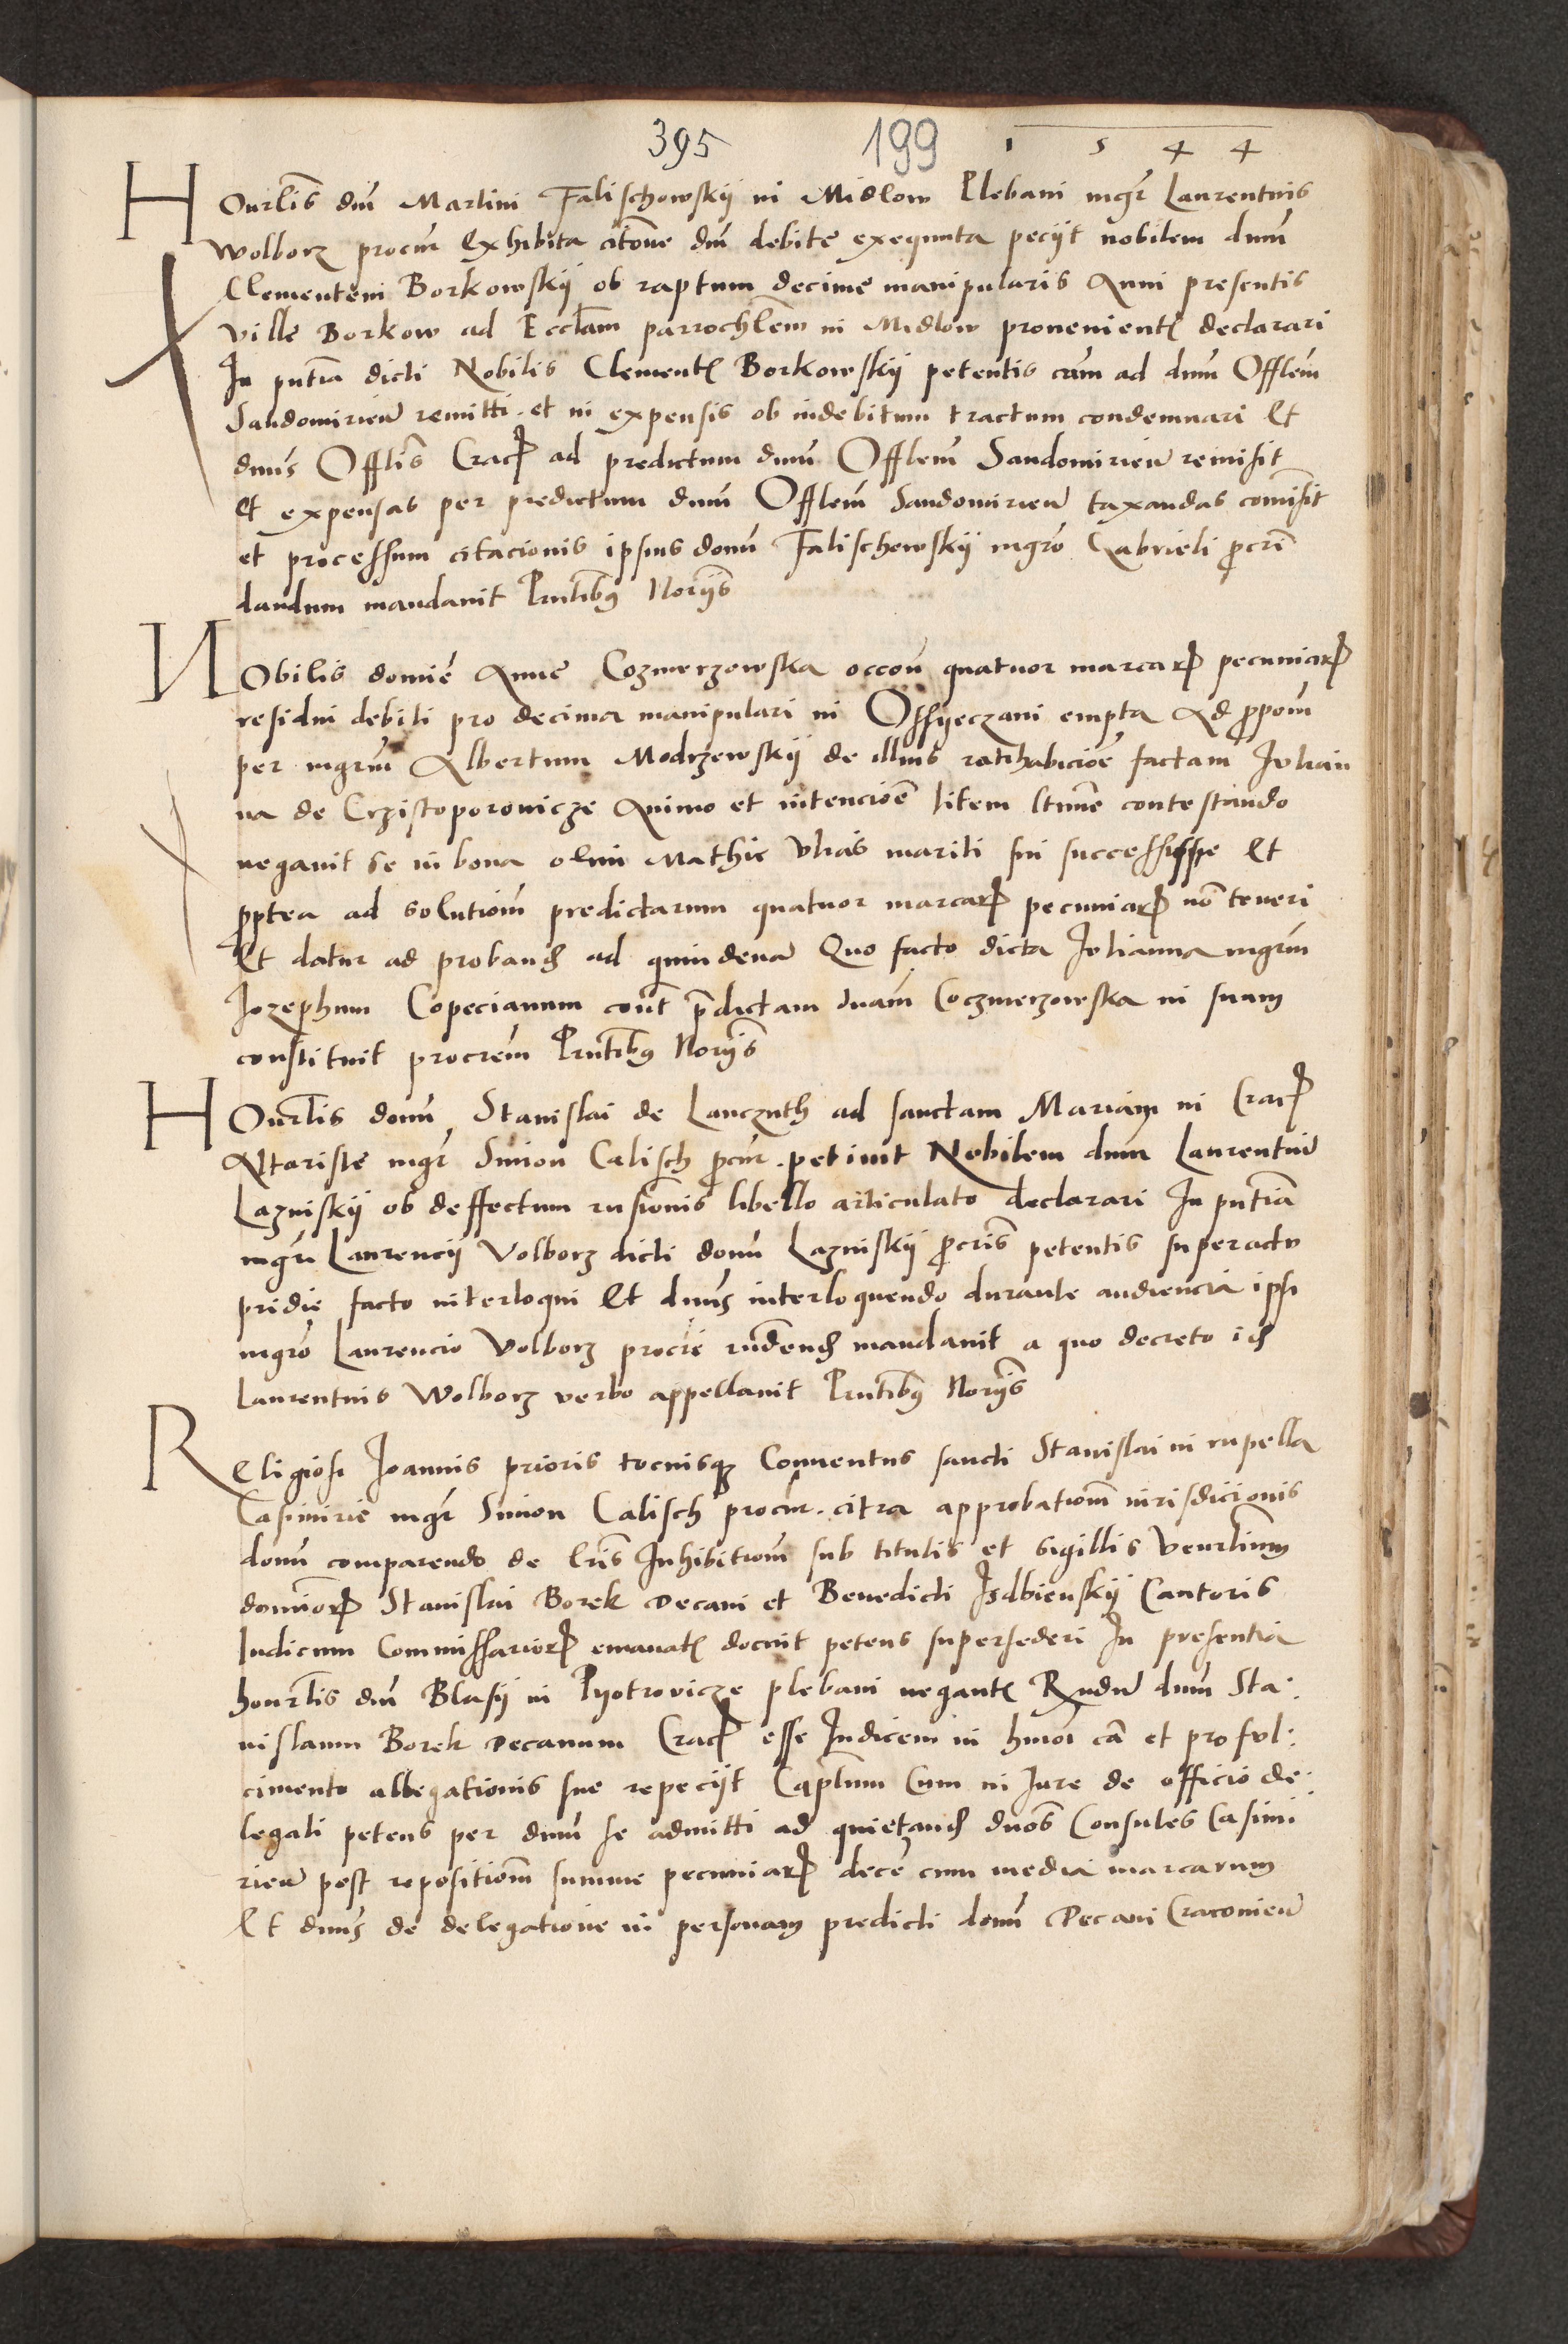 395 199 1 5 4 4
HOnrlis dni Martini Falischowskij in Midlow Plebani mgr Laurentius
Wolborz procur exhibita citone dni debite exequuta peciit nobilem dnum
Clementem Borkowskij ob raptum decime manipularis Anni presentis
ville Borkow ad Ecclam parrochlem in Midlow provenient declarari
In pntia dicti Nobilis Clement Borkowskij petentis cam ad dnum Offlem
Sandomirien remitti . et in expensis ob indebitum tractum condemnari Et
dnus Offlis Crac ad predictum dnum Offlem Sandomirien remisit
et expensas per predictum dnum Offlem Sandomirien taxandas comisit
et processum citacionis ipsius domi Falischowskij mgro Gabrieli pcri
dandum mandavit Pntibus Norijs
NObilis domie Anne Cozmerzowska occon quatuor marcar pecuniar
residui debiti pro decima manipulari in Ossyeczani empta Ad ppom
per mgrum Albertum Modrzewskij de illius ratihabicioe factam Iohan
na de Crzistoporovicze Animo et intencioe litem ltime contestando
negavit se in bona olim Mathie mariti sui successisse Et
pptea ad solutiom predictarum quatuor marcar pecuniar no teneri
Et datur ad proband ad quindena Quo facto dicta Iohanna mgrum
Iozephum Copecianum cont pdictam dnam Coczmerzowska in suum
constituit procrem Pntibus Norijs
HOnrlis domi Stanislai de Lanczuth ad sanctam Mariam in Crac
Altariste mgr Simon Calisch pcur . petivit Nobilem dnum Laurentiu
Lazniskij ob deffectum rnsionis libello articulato declarari In pntia
mgri Laurencij Volborz dicti domi Lazniskij pcris petentis super actu
pridie facto interloqui Et dnus interloquendo durante audiencia ipsi
mgro Laurencio Volborz procri rndend mandavit a quo decreto id
Laurentius Wolborz verbo appellavit Pntibus Norijs
REligiosi Joannis prioris tociusq Conventus sancti Stanislai in rupella
Casimirie mgr Simon Calisch procur . citra approbationm iurisdicionis
domi comparendo de lris Inhibitiom sub titulis et sigillis Venrlium
dominor Stanislai Borek Decani et Benedicti Isdbienskij Cantoris
Iudicum Commissarior emanat docuit petens supersederi In presentia
honrlis dni Blasij in Pyotrovicze plebani negant Rndu dnum Sta:
nislaum Borek Decanum Crac esse Iudicem in hmoi ca et pro ful:
cimento allegationis sue repeciit Caplum Cum in Iure de officio de:
legati petens per dnum se admitti ad quietand dnos Consules Casimi
rien post repositiom summe pecuniar dece cum media marcarum
Et dnus de delegatione in personam predicti domi Decani Cracovien